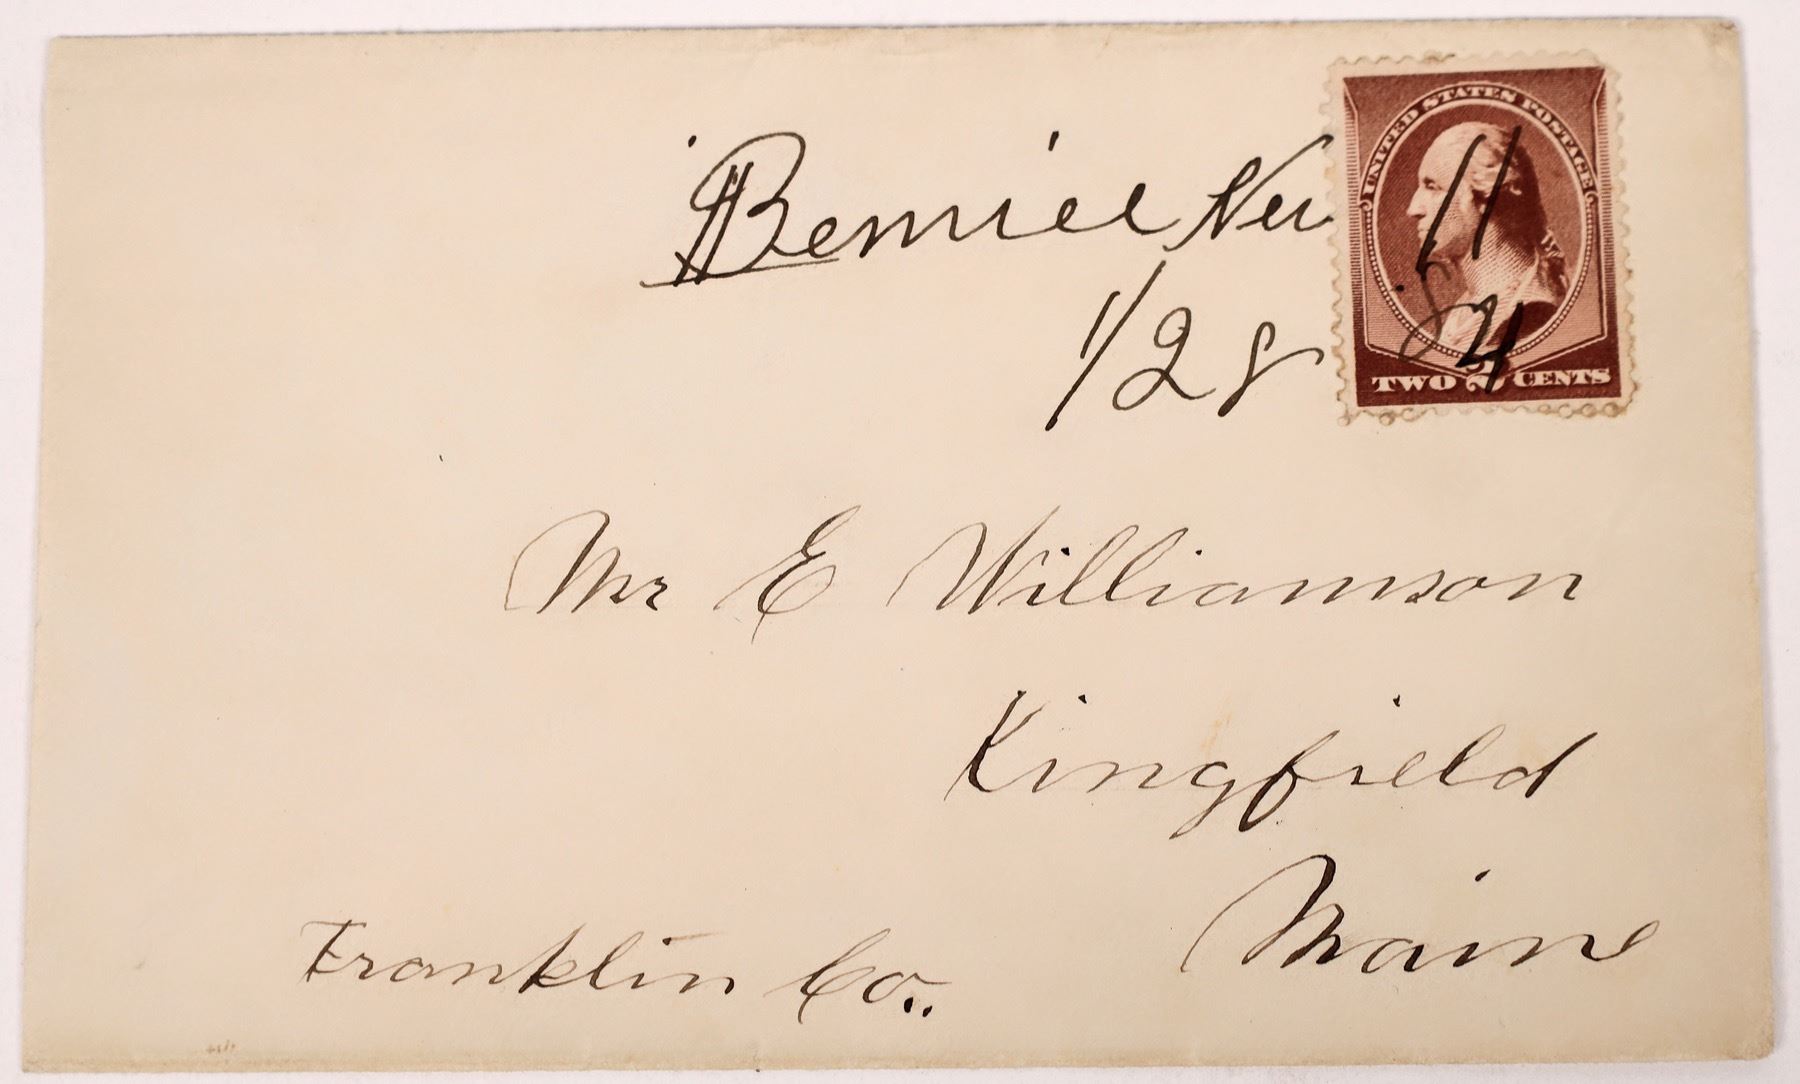 Bernice Nev
1/28
UNITED STATES POSTAGE
11
84
TWO 2 CENTS
Mr E Williamson
Kingfield
Maine
Franklin Co..